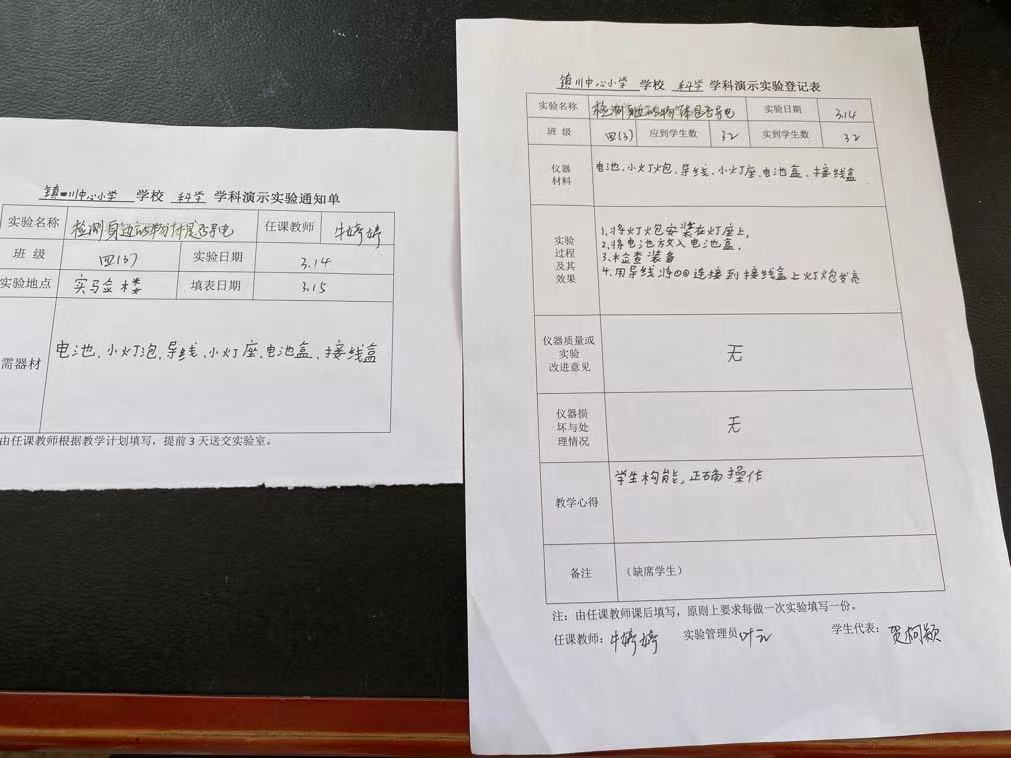 镇川中心小学 学校 科学 学科演示实验通知单
实验名称 检测身边的物体是否导电 任课教师 牛婷婷
班 级 四(3) 实验日期 3.14
实验地点 实验楼 填表日期 3.15
需器材 电池、小灯泡、导线、小灯座、电池盒、接线盒
由任课教师根据教学计划填写，提前 3 天送交实验室。
镇川中心小学 学校 科学 学科演示实验登记表
实验名称 检测身边的物体是否导电 实验日期 3.14
班 级 四(3) 应到学生数 32 实到学生数 32
仪器
材料
电池、小灯炮、导线、小灯座、电池盒、接线盒
实验
过程
及其
效果
1.将灯炮安装在灯座上,
2.将电池放入电池盒.
3.检查装备
4.用导线将 连接到接线盒上灯炮发亮
仪器质量或
实验
改进意见
无
仪器损
坏与处
理情况
无
教学心得
学生构能,正确操作
备注 （缺席学生）
注：由任课教师课后填写，原则上要求每做一次实验填写一份。
任课教师：牛婷婷 实验管理员 叶 学生代表：贺柯颖